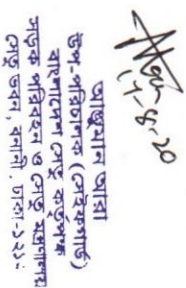 আঞ্জুমান আরা
উপ-পরিচালক (সেইফগার্ড)
বাংলাদেশ সেতু কর্তৃপক্ষ
সড়ক পরিবহন ও সেতু মন্ত্রণালয়
সেতু ভবন, বনানী, ঢাকা-১২১২